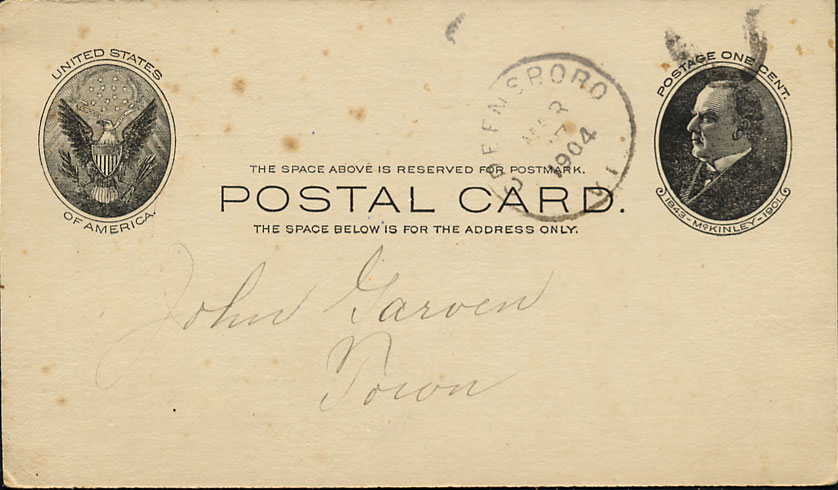 UNITED STATES
OF AMERICA.
GREENSBORO
MAR
7
1904
POSTAGE ONE CENT.
1843-McKINLEY-1901.
THE SPACE ABOVE IS RESERVED FOR POSTMARK.
POSTAL CARD.
THE SPACE BELOW IS FOR THE ADDRESS ONLY.
John Garven
Town